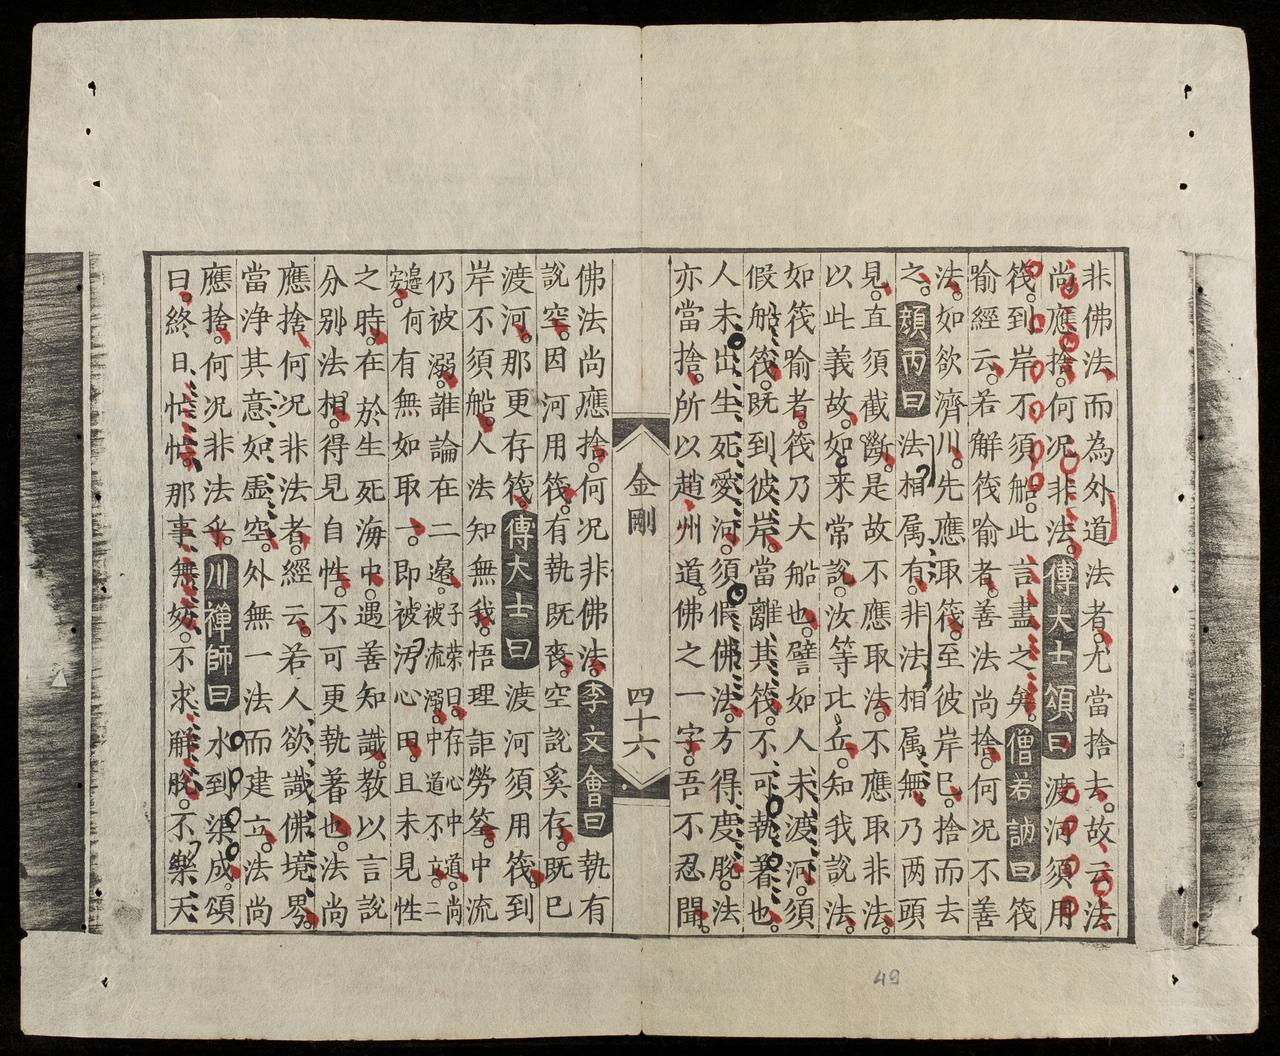 非佛法而為外道法者尤當捨去故云法
尚應捨何况非法傅大士頌曰渡河須用
筏到岸不須船此言盡之矣僧若訥曰筏
喻經云若解筏喻者善法尚捨何况不善
法如欲濟川先應取筏至彼岸已捨而去
之顏丙曰法相属有非法相属無乃两頭
見直須截斷是故不應取法不應取非法
以此義故如来常說汝等比丘知我說法
如筏喻者筏乃大船也譬如人未渡河須
假船筏既到彼岸當離其筏不可執著也
人未出生死愛河須假佛法方得度脫法
亦當捨所以趙州道佛之一字吾不忍聞
金剛 四十六
佛法尚應捨何况非佛法李文會曰執有
說空因河用筏有執既喪空說奚存既已
渡河那更存筏傅大士曰渡河須用筏到
岸不須船人法知無我悟理詎勞筌中流
仍被溺誰論在二邊子榮曰存心中道尚被流溺中道不立二
邊何安有無如取一即被汚心田且未見性
之時在於生死海中遇善知識教以言說
分别法相得見自性不可更執著也法尚
應捨何况非法者經云若人欲識佛境界
當净其意如虛空外無一法而建立法尚
應捨何况非法乎川禪師曰水到渠成頌
曰終日忙忙那事無妨不求解脫不樂天
49